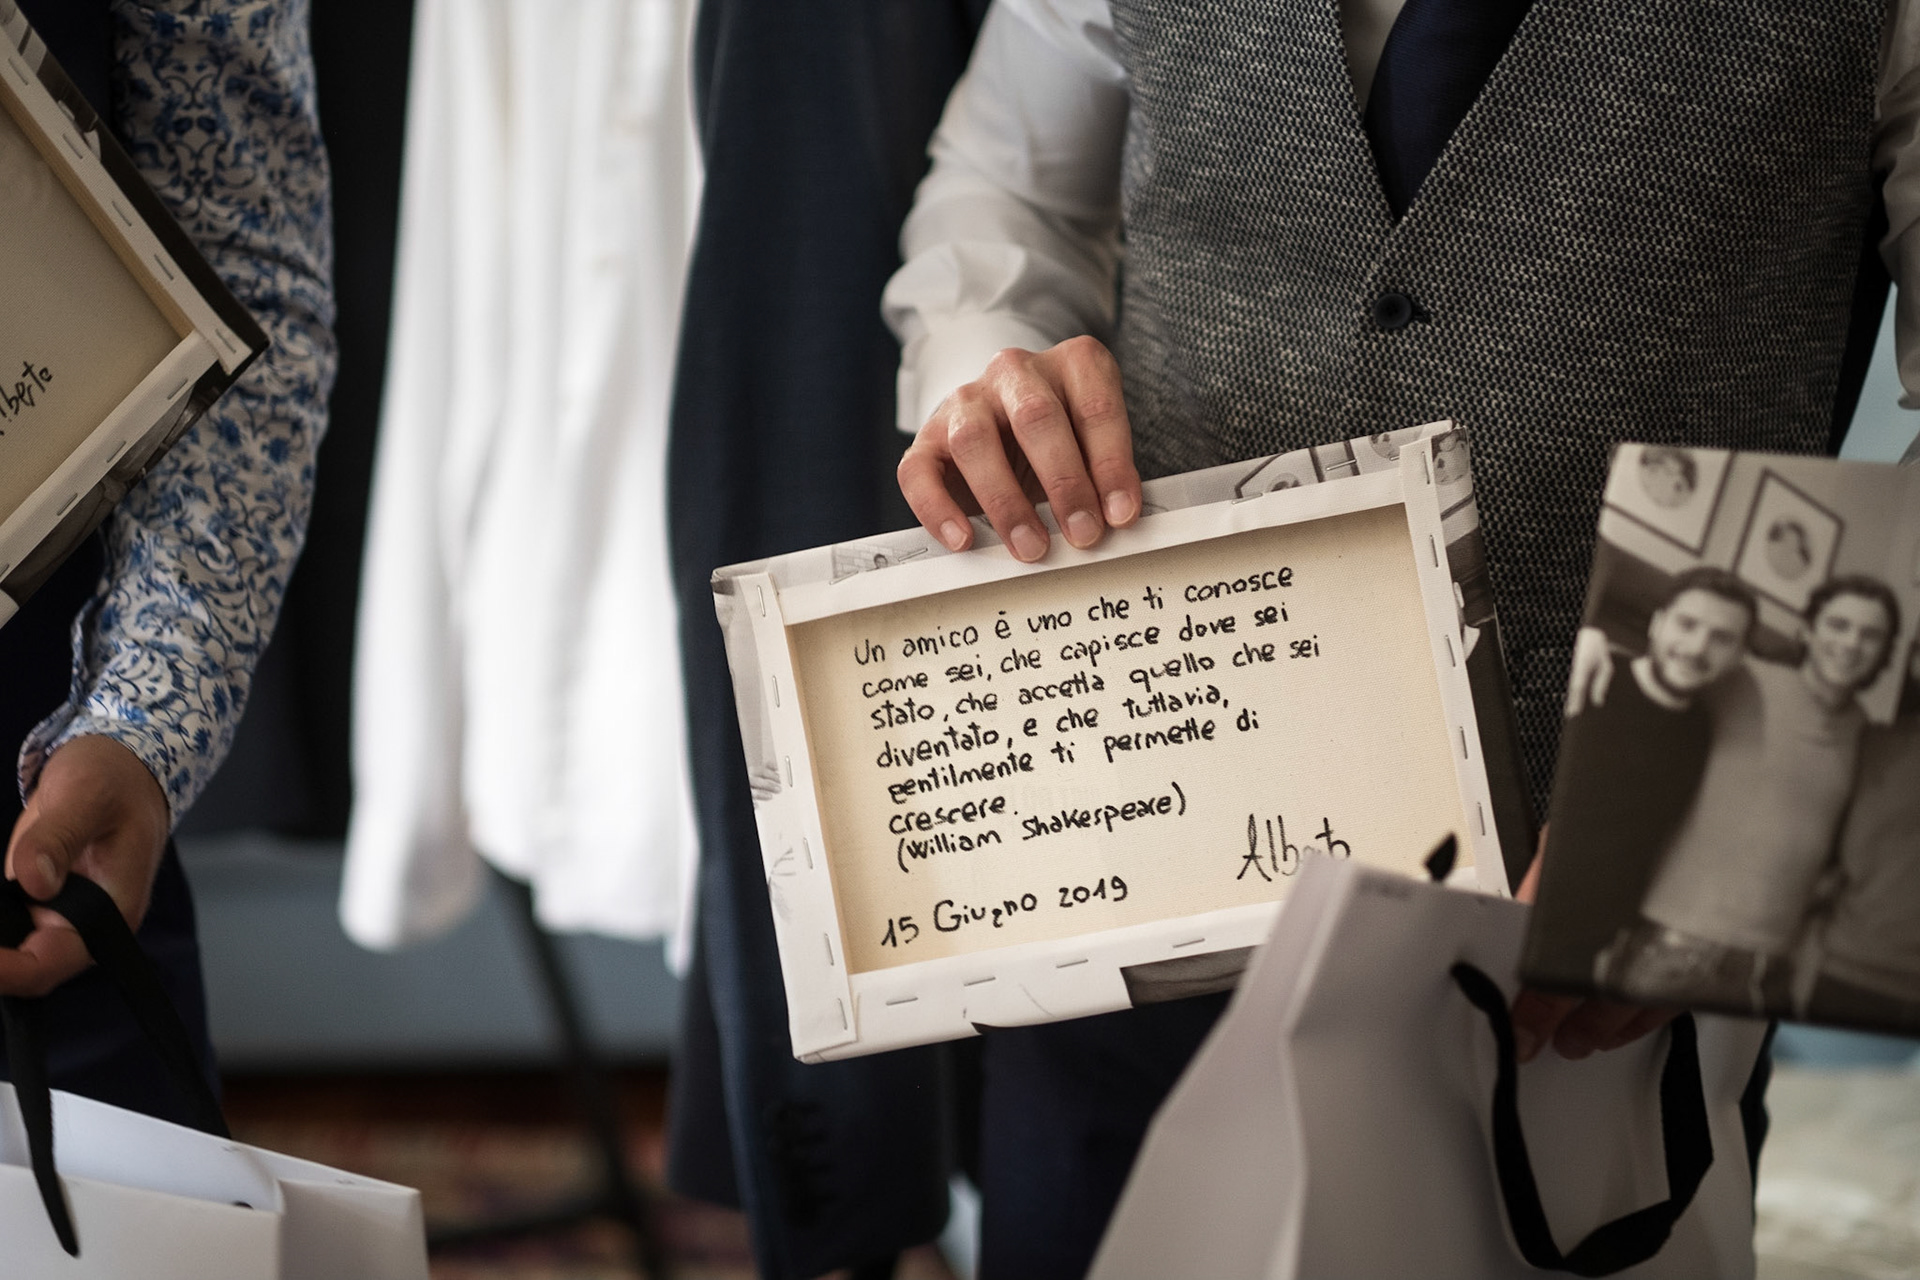 Un amico è uno che ti conosce
come sei, che capisce dove sei
stato, che accetta quello che sei
diventato, e che tuttavia,
gentilmente ti permette di
crescere.
(William Shakespeare)
Alberto
15 Giugno 2019